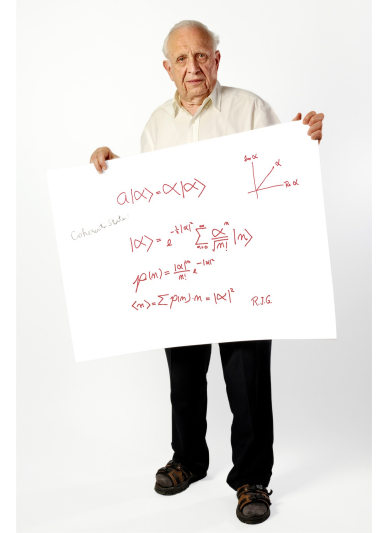 a|α⟩ = α|α⟩
Im α
α
Re α
Coherent State
|α⟩ = e^{-½|α|²} \sum_{n=0}^{∞} \frac{α^n}{\sqrt{n!}} |n⟩
p(n) = \frac{|α|^{2n}}{n!} e^{-|α|²}
⟨n⟩ = Σ p(n)·n = |α|²
R.J.G.